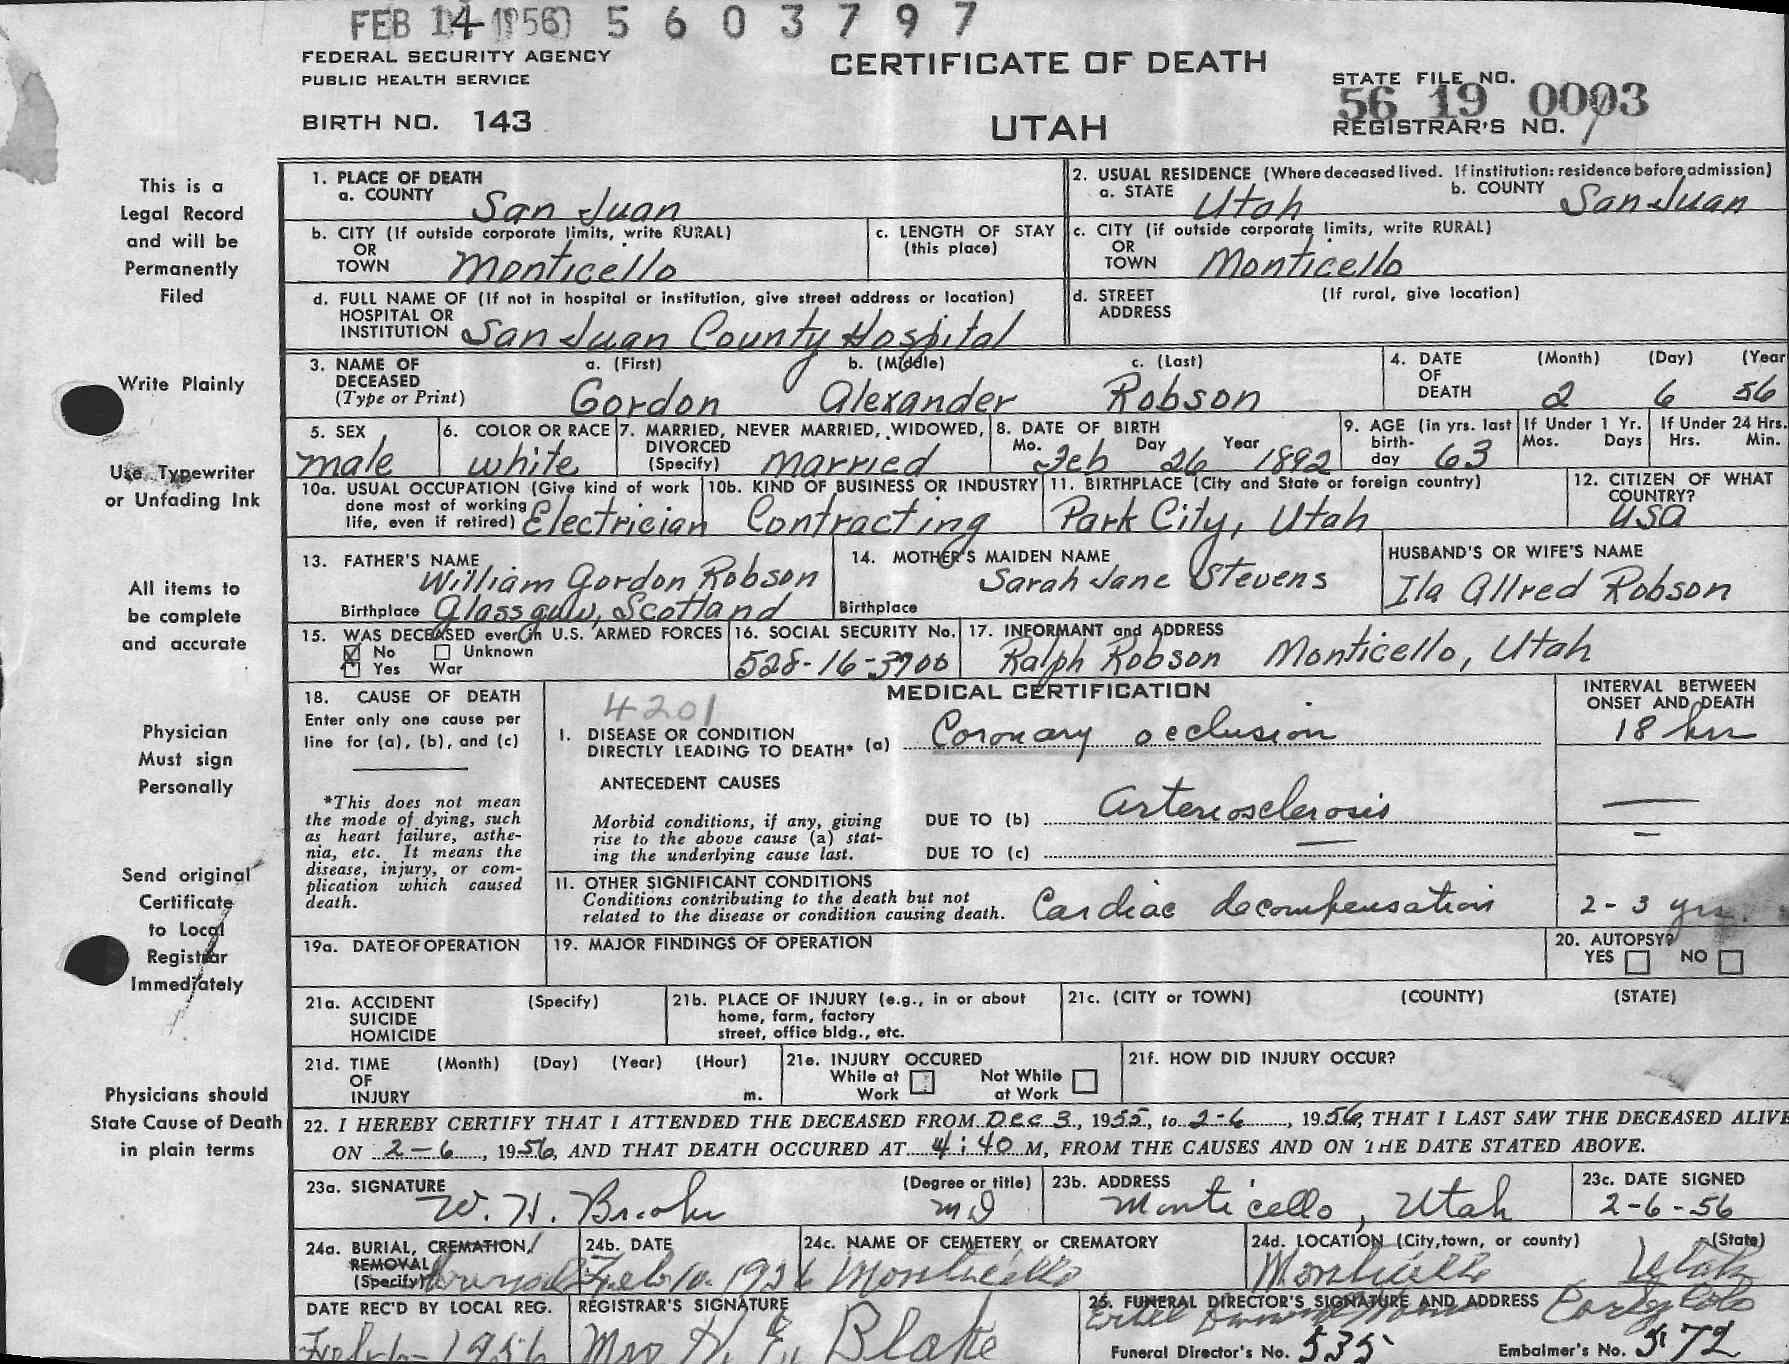 FEB 14 1956 5603797
FEDERAL SECURITY AGENCY
PUBLIC HEALTH SERVICE
BIRTH NO. 143
CERTIFICATE OF DEATH
UTAH
STATE FILE NO.
56 19 0003
REGISTRAR'S NO. 1
This is a
Legal Record
and will be
Permanently
Filed
Write Plainly
Use Typewriter
or Unfading Ink
All items to
be complete
and accurate
Physician
Must sign
Personally
Send original
Certificate
to Local
Registrar
Immediately
Physicians should
State Cause of Death
in plain terms
1. PLACE OF DEATH
a. COUNTY San Juan
2. USUAL RESIDENCE (Where deceased lived. If institution: residence before admission)
a. STATE Utah b. COUNTY San Juan
b. CITY (If outside corporate limits, write RURAL)
OR
TOWN Monticello
c. LENGTH OF STAY
(this place)
c. CITY (if outside corporate limits, write RURAL)
OR
TOWN Monticello
d. FULL NAME OF (If not in hospital or institution, give street address or location)
HOSPITAL OR
INSTITUTION San Juan County Hospital
d. STREET (If rural, give location)
ADDRESS
3. NAME OF DECEASED (Type or Print)
a. (First) b. (Middle) c. (Last)
Gordon Alexander Robson
4. DATE OF DEATH (Month) (Day) (Year
2 6 56
5. SEX
male
6. COLOR OR RACE
white
7. MARRIED, NEVER MARRIED, WIDOWED,
DIVORCED
(Specify) Married
8. DATE OF BIRTH
Mo. Day Year
Feb 26 1892
9. AGE (in yrs. last
birth-
day 63
If Under 1 Yr.
Mos. Days
If Under 24 Hrs.
Hrs. Min.
10a. USUAL OCCUPATION (Give kind of work
done most of working
life, even if retired) Electrician
10b. KIND OF BUSINESS OR INDUSTRY
Contracting
11. BIRTHPLACE (City and State or foreign country)
Park City, Utah
12. CITIZEN OF WHAT
COUNTRY?
USA
13. FATHER'S NAME
William Gordon Robson
Birthplace Glassgow, Scotland
14. MOTHER'S MAIDEN NAME
Sarah Jane Stevens
Birthplace
HUSBAND'S OR WIFE'S NAME
Ila Allred Robson
15. WAS DECEASED ever in U.S. ARMED FORCES
No Unknown
Yes War
16. SOCIAL SECURITY No.
528-16-3900
17. INFORMANT and ADDRESS
Ralph Robson Monticello, Utah
18. CAUSE OF DEATH
Enter only one cause per
line for (a), (b), and (c)
*This does not mean
the mode of dying, such
as heart failure, asthe-
nia, etc. It means the
disease, injury, or com-
plication which caused
death.
MEDICAL CERTIFICATION
4201
INTERVAL BETWEEN
ONSET AND DEATH
I. DISEASE OR CONDITION
DIRECTLY LEADING TO DEATH* (a) Coronary occlusion 18 hrs
ANTECEDENT CAUSES
Morbid conditions, if any, giving
rise to the above cause (a) stat-
ing the underlying cause last.
DUE TO (b) arteriosclerosis —
DUE TO (c) — —
11. OTHER SIGNIFICANT CONDITIONS
Conditions contributing to the death but not
related to the disease or condition causing death. Cardiac decompensation 2-3 yrs.
19a. DATE OF OPERATION
19. MAJOR FINDINGS OF OPERATION
20. AUTOPSY?
YES NO
21a. ACCIDENT (Specify)
SUICIDE
HOMICIDE
21b. PLACE OF INJURY (e.g., in or about
home, farm, factory
street, office bldg., etc.
21c. (CITY or TOWN) (COUNTY) (STATE)
21d. TIME (Month) (Day) (Year) (Hour)
OF
INJURY m.
21e. INJURY OCCURED
While at Work Not While at Work
21f. HOW DID INJURY OCCUR?
22. I HEREBY CERTIFY THAT I ATTENDED THE DECEASED FROM Dec 3, 1955, to 2-6, 1956, THAT I LAST SAW THE DECEASED ALIVE
ON 2-6, 1956, AND THAT DEATH OCCURED AT 4:40 M, FROM THE CAUSES AND ON THE DATE STATED ABOVE.
23a. SIGNATURE (Degree or title)
W. H. MD
23b. ADDRESS
Monticello, Utah
23c. DATE SIGNED
2-6-56
24a. BURIAL, CREMATION,
REMOVAL
(Specify) Burial
24b. DATE
Feb 10. 1956
24c. NAME OF CEMETERY or CREMATORY
Monticello
24d. LOCATION (City, town, or county) (State)
Monticello Utah
DATE REC'D BY LOCAL REG.
Feb 6- 1956
REGISTRAR'S SIGNATURE
Mrs H. E. Blake
25. FUNERAL DIRECTOR'S SIGNATURE AND ADDRESS
Colo
Funeral Director's No. 535 Embalmer's No. 572